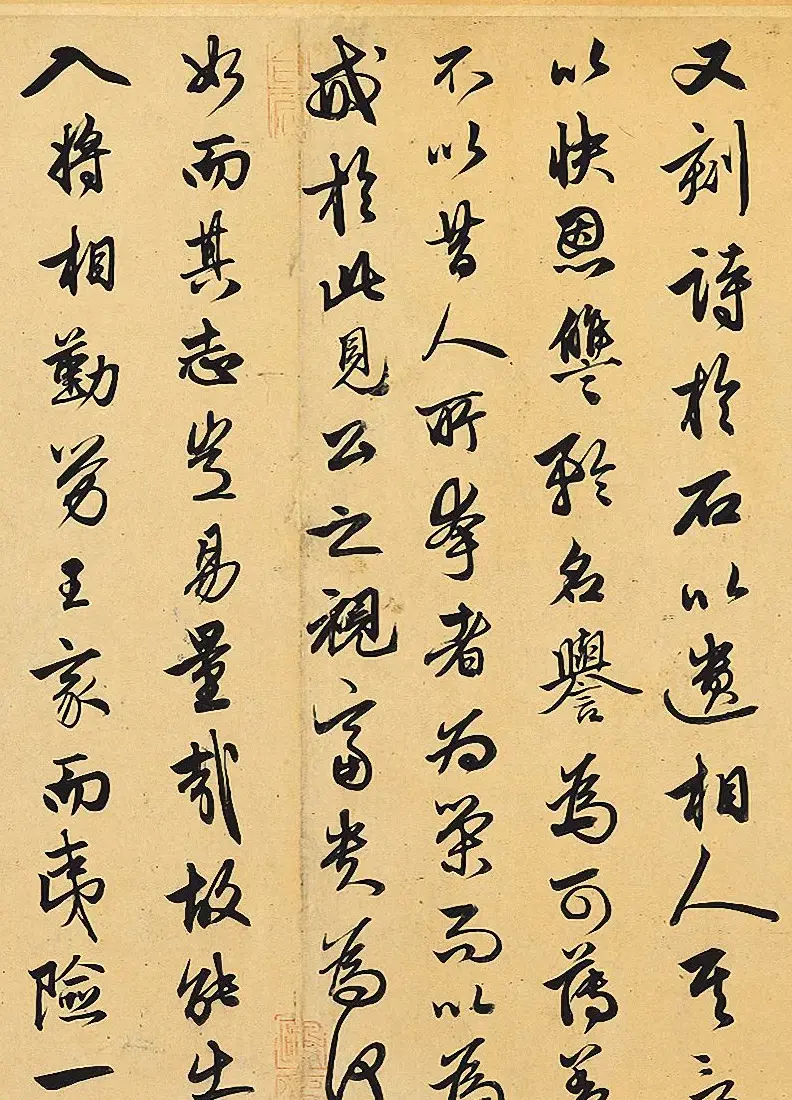 又刻詩於石以遺相人其言
以快恩讐矜名譽為可薄蓋
不以昔人所夸者為榮而以為
戒於此見公之視富貴為何
如而其志豈易量哉故能出
入將相勤勞王家而夷險一